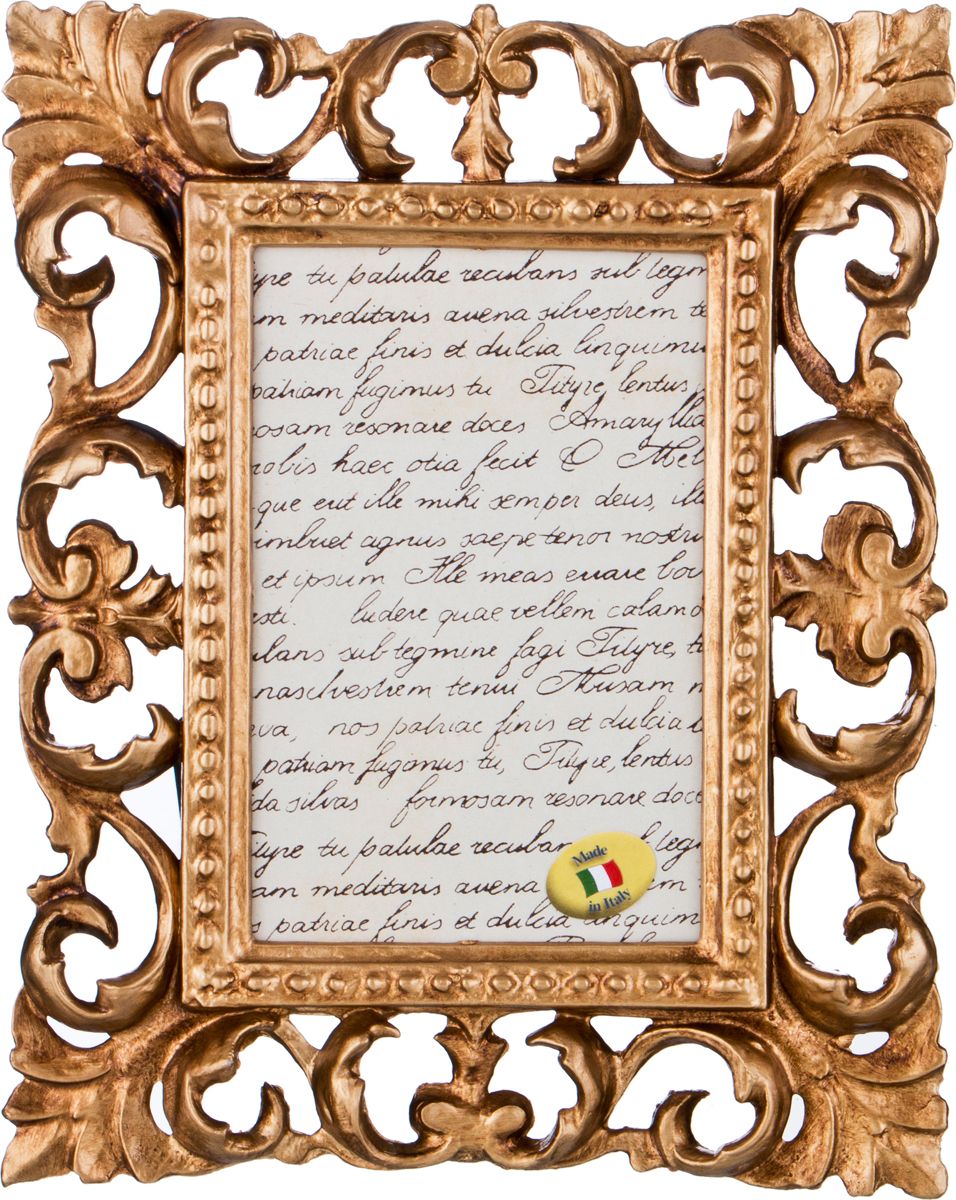 tu patulae recubans sub tegm
am meditaris avena silvestrem te
patriae finis et dulcia linquimu
patriam fugimus tu Tityre, lentus
mosam resonare doces Amarylli
nobis haec otia fecit O Mel
que erit ille mihi semper deus, ille
imbuet agnus saepe tenor nostri
et ipsum Ille meas errare bov
esti. ludere quae vellem calamo
ulans sub tegmine fagi Tityre, t
nasilvestrem tenui Musam m
va, nos patriae finis et dulcia l
patriam fugimus tu, Tityre, lentus
da silvas formosam resonare doce
Tityre tu patulae recuban sub tegm
am meditaris avena em
patriae finis et dulcia linquim
Made
in Italy